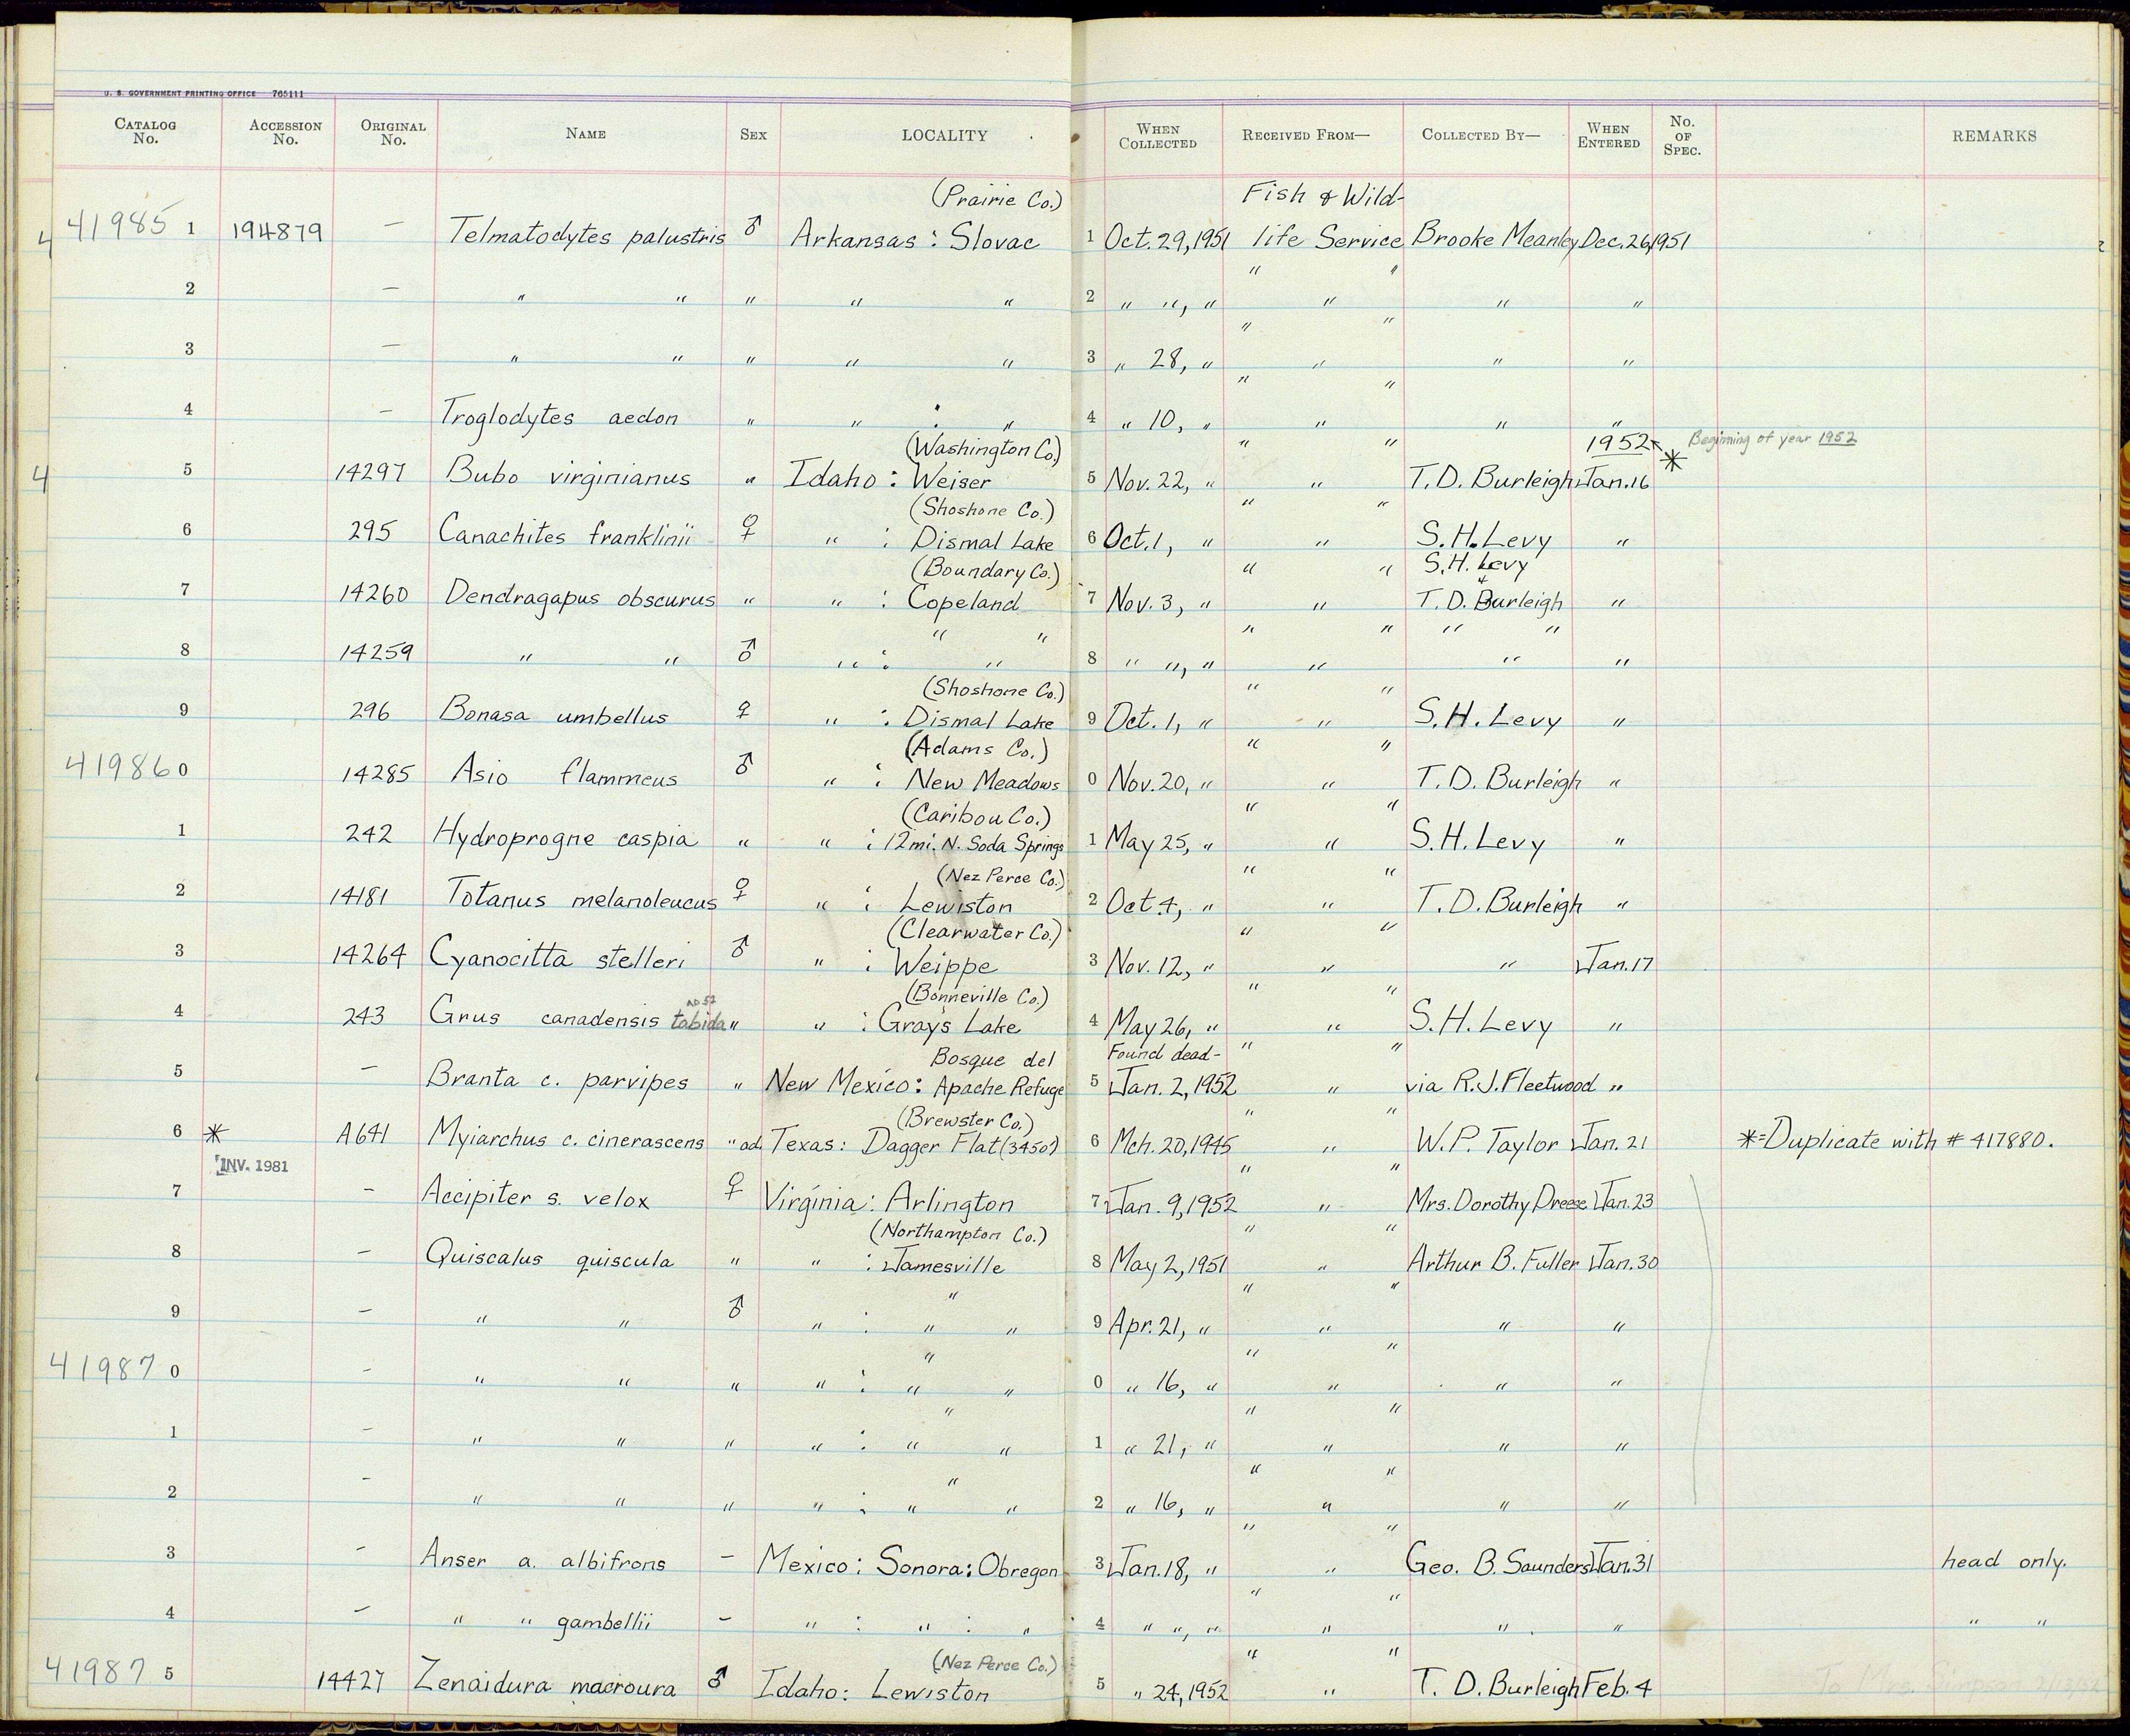 U. S. GOVERNMENT PRINTING OFFICE 765111
CATALOG No. ACCESSION No. ORIGINAL No. NAME SEX LOCALITY WHEN COLLECTED RECEIVED FROM— COLLECTED BY— WHEN ENTERED No. OF SPEC. REMARKS
(Prairie Co.) Fish & Wild-
4 41985 1 194879 — Telmatodytes palustris ♂ Arkansas : Slovac 1 Oct. 29, 1951 life Service Brooke Meanley Dec. 26, 1951
" "
2 — " " " " " 2 " ", " " " "
" "
3 — " " " " " 3 " 28, " " " "
" "
4 — Troglodytes aedon " " : " 4 " 10, " " " "
(Washington Co.) " " 1952 * Beginning of year 1952
4 5 14297 Bubo virginianus " Idaho : Weiser 5 Nov. 22, " " T. D. Burleigh Jan. 16
(Shoshone Co.) " "
6 295 Canachites franklinii ♀ " : Dismal Lake 6 Oct. 1, " " S. H. Levy "
(Boundary Co.) " " S. H. Levy
7 14260 Dendragapus obscurus " " : Copeland 7 Nov. 3, " " & T. D. Burleigh "
" " " " " "
8 14259 " " ♂ " : " 8 " ", " " " "
(Shoshone Co.) " "
9 296 Bonasa umbellus ♀ " : Dismal Lake 9 Oct. 1, " " S. H. Levy "
(Adams Co.) " "
41986 0 14285 Asio flammeus ♂ " : New Meadows 0 Nov. 20, " " T. D. Burleigh "
(Caribou Co.) " "
1 242 Hydroprogne caspia " " : 12 mi. N. Soda Springs 1 May 25, " " S. H. Levy "
(Nez Perce Co.) " "
2 14181 Totanus melanoleucus ♀ " : Lewiston 2 Oct. 4, " " T. D. Burleigh "
(Clearwater Co.) " "
3 14264 Cyanocitta stelleri ♂ " : Weippe 3 Nov. 12, " " " Jan. 17
(Bonneville Co.) " "
4 243 Grus canadensis tabida " " : Grays Lake 4 May 26, " " S. H. Levy "
Bosque del Found dead- " "
5 — Branta c. parvipes " New Mexico : Apache Refuge 5 Jan. 2, 1952 " via R. J. Fleetwood "
(Brewster Co.) " "
6 * A641 Myiarchus c. cinerascens " ad. Texas : Dagger Flat (3450') 6 Mch. 20, 1945 " W. P. Taylor Jan. 21 *=Duplicate with # 417880.
INV. 1981 " "
7 — Accipiter s. velox ♀ Virginia : Arlington 7 Jan. 9, 1952 " Mrs. Dorothy Dreese Jan. 23
(Northampton Co.) " "
8 — Quiscalus quiscula " " : Jamesville 8 May 2, 1951 " Arthur B. Fuller Jan. 30
" " "
9 — " " ♂ " : " " 9 Apr. 21, " " " "
" " "
41987 0 — " " " " : " " 0 " 16, " " " "
" " "
1 — " " " " : " " 1 " 21, " " " "
" " "
2 — " " " " : " " 2 " 16, " " " "
" "
3 — Anser a. albifrons — Mexico : Sonora : Obregon 3 Jan. 18, " " Geo. B. Saunders Jan. 31 head only.
" "
4 — " " gambellii — " : " : " 4 " ", " " " " " "
(Nez Perce Co.) " "
41987 5 14427 Zenaidura macroura ♂ Idaho : Lewiston 5 " 24, 1952 " T. D. Burleigh Feb. 4